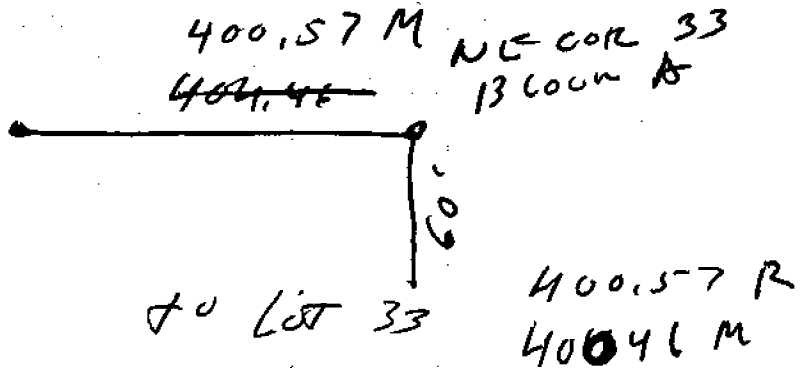 400.57 M
NE COR 33
404.46
BLOCK A
60'
TO LOT 33
400.57 R
400 46 M